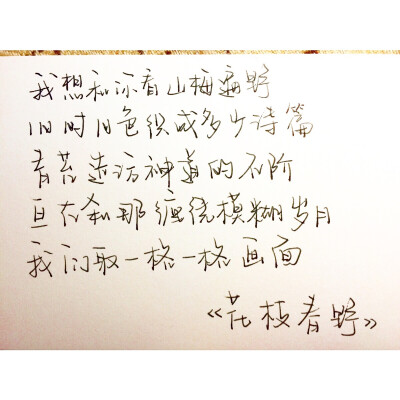 我想和你看山梅遍野
旧时旧色织成多少诗篇
青苔造访神道的石阶
亘在刹那缠绕模糊岁月
我们取一格一格画面
《花枝春野》